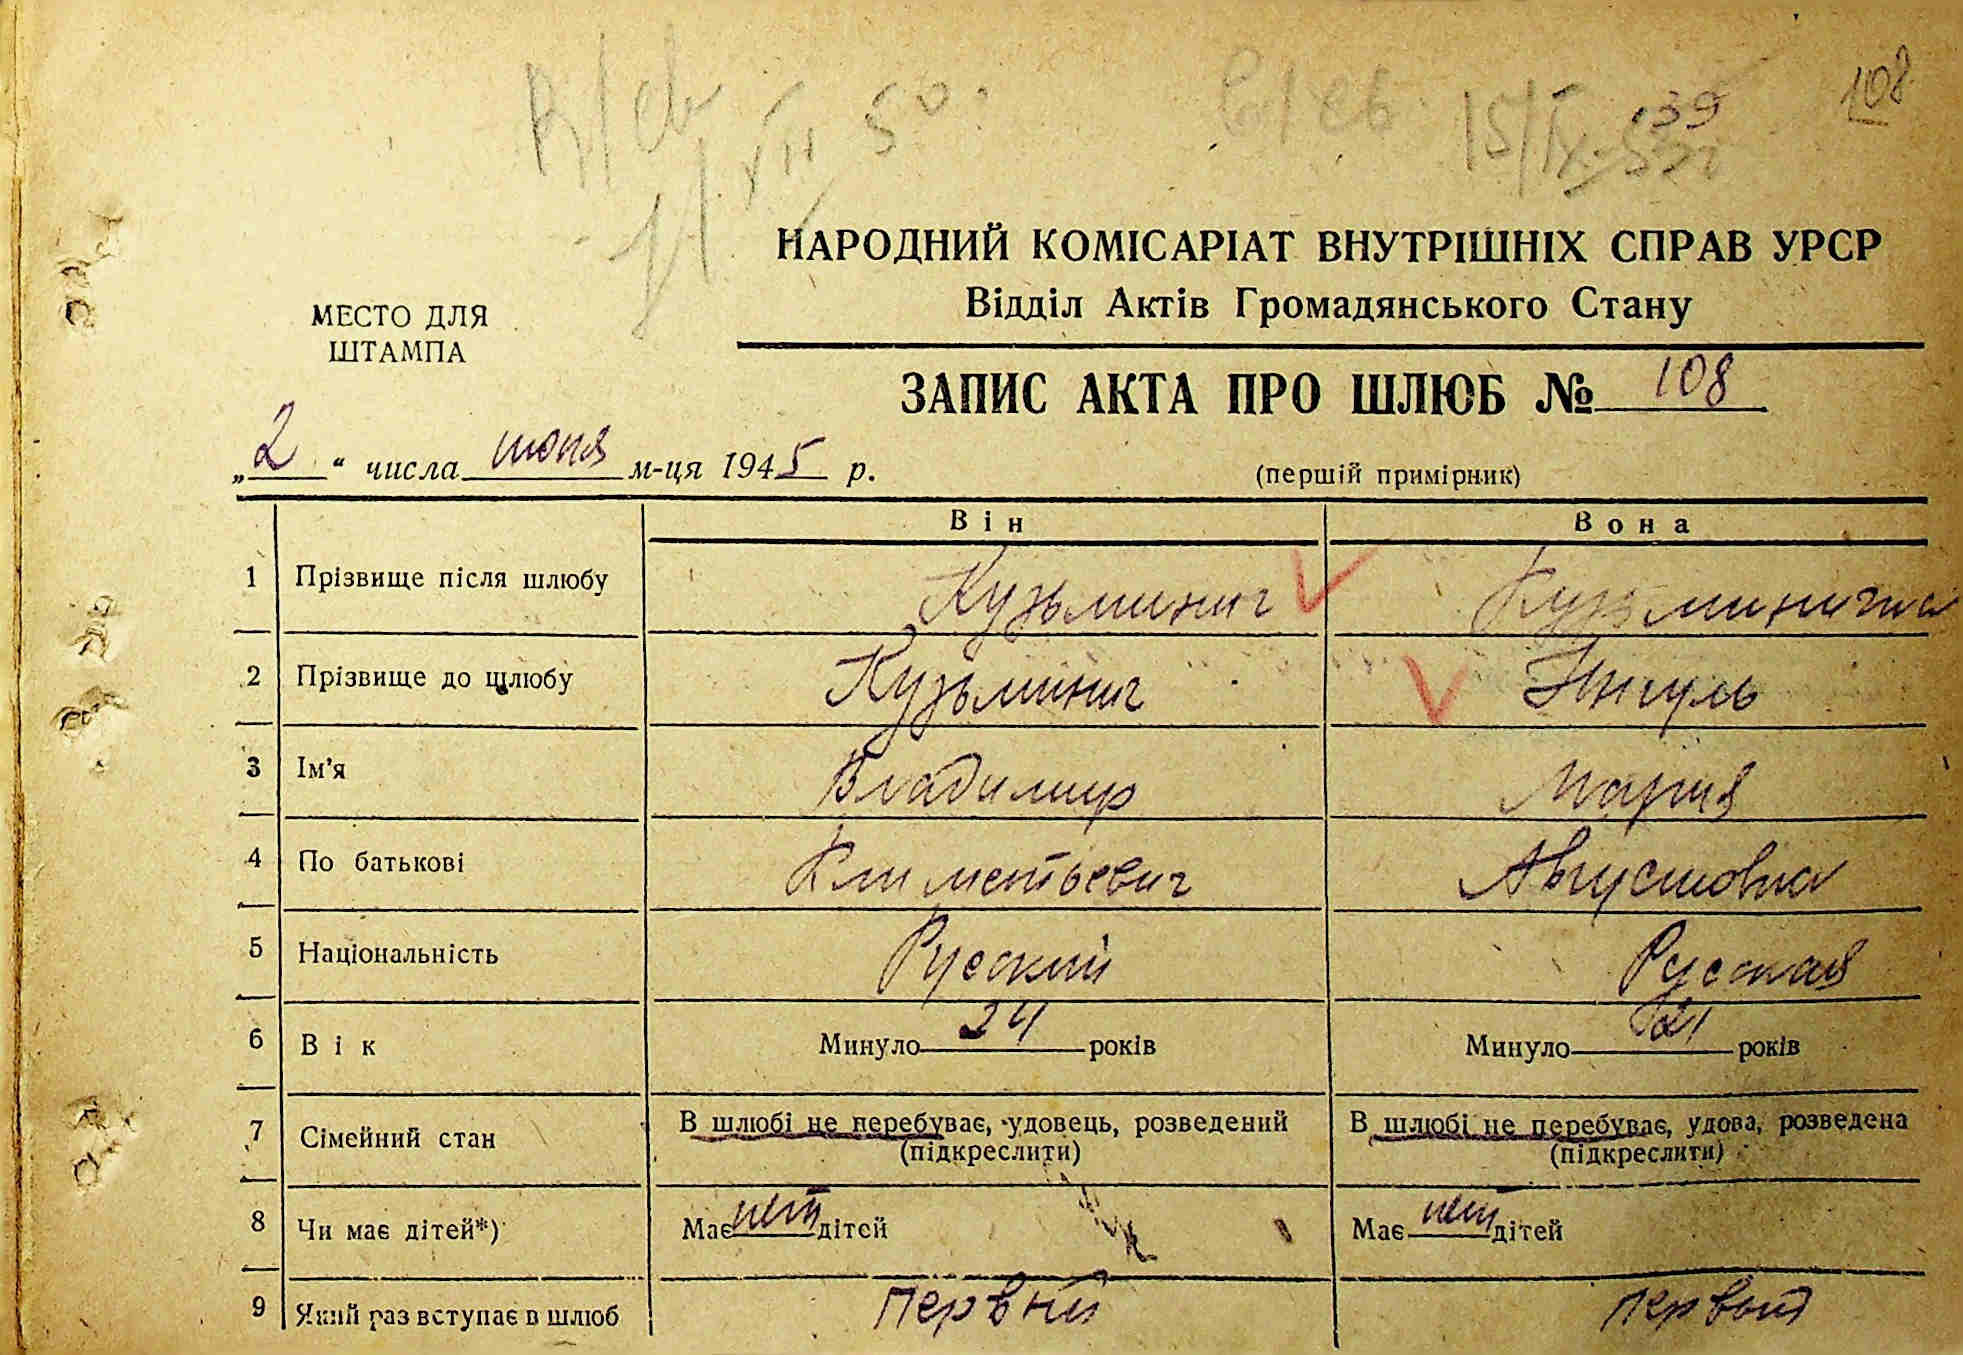 108
50
15/IX
139
НАРОДНИЙ КОМІСАРІАТ ВНУТРІШНІХ СПРАВ УРСР
Відділ Актів Громадянського Стану
МЕСТО ДЛЯ
ШТАМПА
ЗАПИС АКТА ПРО ШЛЮБ № 108
„2“ числа июня м-ця 1945 р.
(першій примірник)
Він Вона
1 Прізвище після шлюбу Кузьминич Кузьминична
2 Прізвище до шлюбу Кузьминич
3 Ім’я Владимир Мария
4 По батькові Климетьевич Августовна
5 Національність Русский Русская
6 Вік Минуло 24 років Минуло 21 років
7 Сімейний стан В шлюбі не перебуває, удовець, розведений В шлюбі не перебуває, удова, розведена
(підкреслити) (підкреслити)
8 Чи має дітей*) Має нет дітей Має нет дітей
9 Який раз вступає в шлюб первый первый